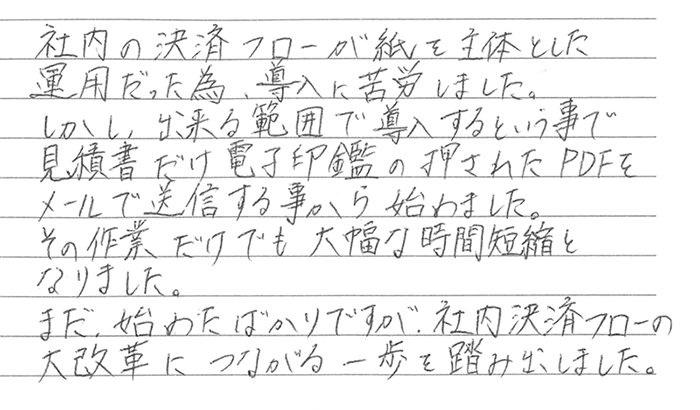 社内の決済フローが紙を主体とした
運用だった為、導入に苦労しました。
しかし、出来る範囲で導入するという事で
見積書だけ電子印鑑の押されたPDFを
メールで送信する事から始めました。
その作業だけでも大幅な時間短縮と
なりました。
まだ、始めたばかりですが、社内決済フローの
大改革につながる一歩を踏み出しました。